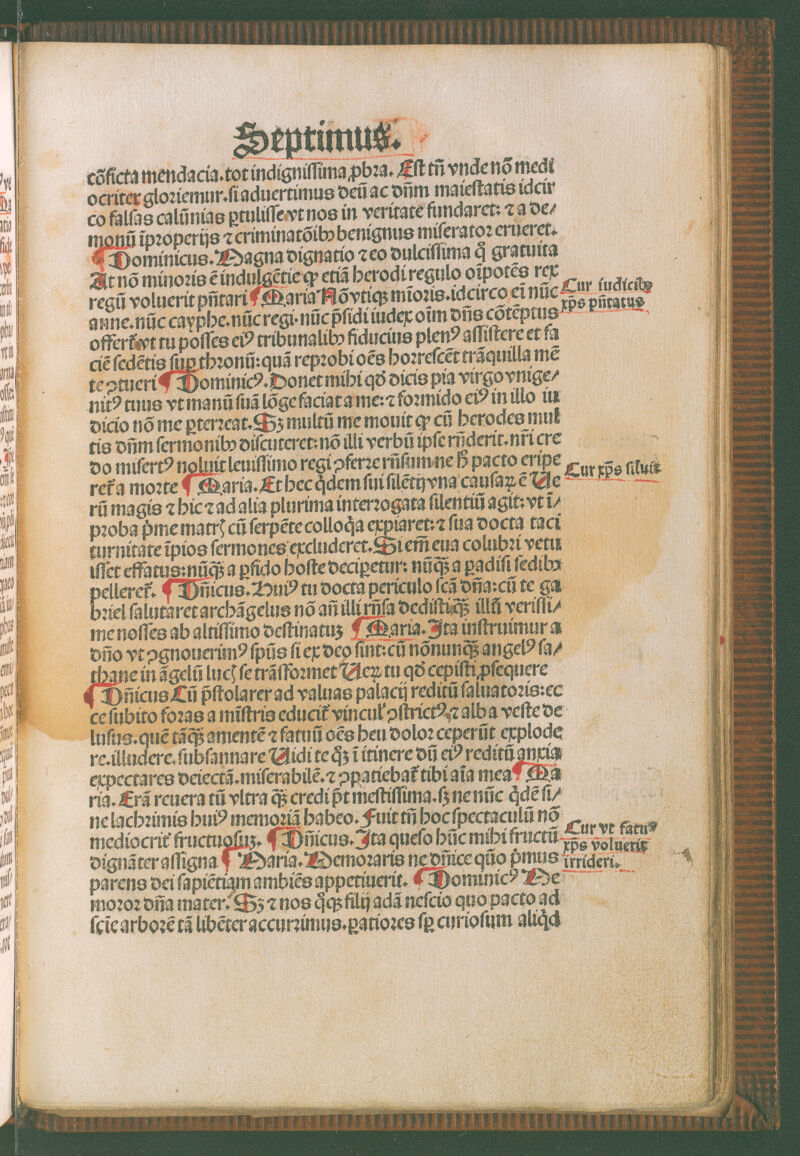 Septimus.
cōficta mendacia.tot indigniſſima ꝓbꝛa. Eſt tñ vnde nō medi
ocriter gloꝛiemur.ſi aduertimus deū ac dñm maieſtatis idcir
co falſas calūnias ꝑtuliſſe.vt nos in veritate fundaret: ⁊ a de⸗
monū īpꝛoperijs ⁊ criminatōibꝰ benignus miſeratoꝛ erueret.
¶ Dominicus. Magna dignatio ⁊ eo dulciſſima q̄ gratuita
At nō minoꝛis ē indulgētie ꝙ etiā herodi regulo oīpotēs rex
regū voluerit pñtari ¶ Maria Nōvtiqꝫ mīoꝛis.idcirco eī nūc
Cur iudicibꝰ
xp̄s pñtatus
anne.nūc cayphe.nūc regi.nūc p̄ſidi iudex oīm dñs cōtēptus
offert̄.vt tu poſſes eiꝰ tribunalibꝰ fiducius plenꝰ aſſiſtere et fa
ciē ſedētis ſuꝑ thꝛonū:quā repꝛobi oēs hoꝛreſcēt trāquilla mē
te ꝯtueri ¶ Dominicꝰ. Donet mihi qď dicis pia virgo vnige⸗
nitꝰ tuus vt manū ſuā lōge faciat a me:⁊ foꝛmido eiꝰ in illo iu
dicio nō me ꝑterreat. Sꝫ multū me mouit ꝙ cū herodes mul
tis dñm ſermonibꝰ diſcuteret:nō illi verbū ipſe rñderit.nri cre
do miſertꝰ noluit leuiſſimo regi ꝯferre rñſum ne ħ pacto eripe
Cur xp̄s ſiluit
ret̄ a moꝛte ¶ Maria. Et hec q̇dem ſui ſilētij vna cauſaꝝ ē Ue
rū magis ⁊ hic ⁊ ad alia plurima interrogata ſilentiū agit: vt ī⸗
pꝛoba ṗme matrꝭ cū ſerpēte colloq̇a expiaret: ⁊ ſua docta taci
turnitate īpios ſermones excluderet. Si em̄ eua colubꝛi vetu
iſſet effatus:nūqꝫ a ꝑfido hoſte deciperetur: nūqꝫ a ꝑadiſi ſedibꝰ
pelleret̄. ¶ Dñicus. Huiꝰ tu docta periculo ſcā dña:cū te ga
bꝛiel ſalutaret archāgelus nō añ illi rñſa dediſti.qꝫ illū veriſſi⸗
me noſſes ab altiſſimo deſtinatuꝫ ¶ Maria. Ita inſtruimur a
dño vt ꝯgnouerimꝰ ſpūs ſi ex deo ſint:cū nōnunqꝫ angelꝰ ſa⸗
thane in āgelū lucꝭ ſe trāſfoꝛmet Ueꝝ tu qď cepiſti ꝓſequere
¶ Dñicus Cū p̄ſtolarer ad valuas palacij reditū ſaluatoꝛis:ec
ce ſubito foꝛas a mīſtris educit̄ vincul̕ ꝯſtrictꝰ ⁊ alba veſte de
luſus.quē tāqꝫ amentē ⁊ fatuū oēs heu doloꝛ ceperūt explode
re.illudere.ſubſannare Uidi te qꝫ ī itinere dū eiꝰ reditū anxia
expectares deiectā.miſerabilē.⁊ ꝯpatiebat̄ tibi aīa mea ¶ Ma
ria. Erā reuera tū vltra qꝫ credi p̄t meſtiſſima.ſꝫ ne nūc q̇dē ſi⸗
ne lachꝛimis huiꝰ memoꝛiā habeo. Fuit tñ hoc ſpectaculū nō
mediocrit̄ fructuoſuꝫ. ¶ Dñicus. Ita queſo hūc mihi fructū
Cur vt fatuꝰ
xp̄s voluerit
irrideri.
dignāter aſſigna ¶ Maria. Memoꝛaris ne dñice quō ṗmus
parens dei ſapiētiam ambiēs appetiuerit. ¶ Dominicꝰ Me
moꝛoꝛ dña mater. Sꝫ ⁊ nos q̊qꝫ filij adā neſcio quo pacto ad
ſcīe arboꝛē tā libēter accurrimus.ꝑatioꝛes ſꝑ curioſum aliq̇d